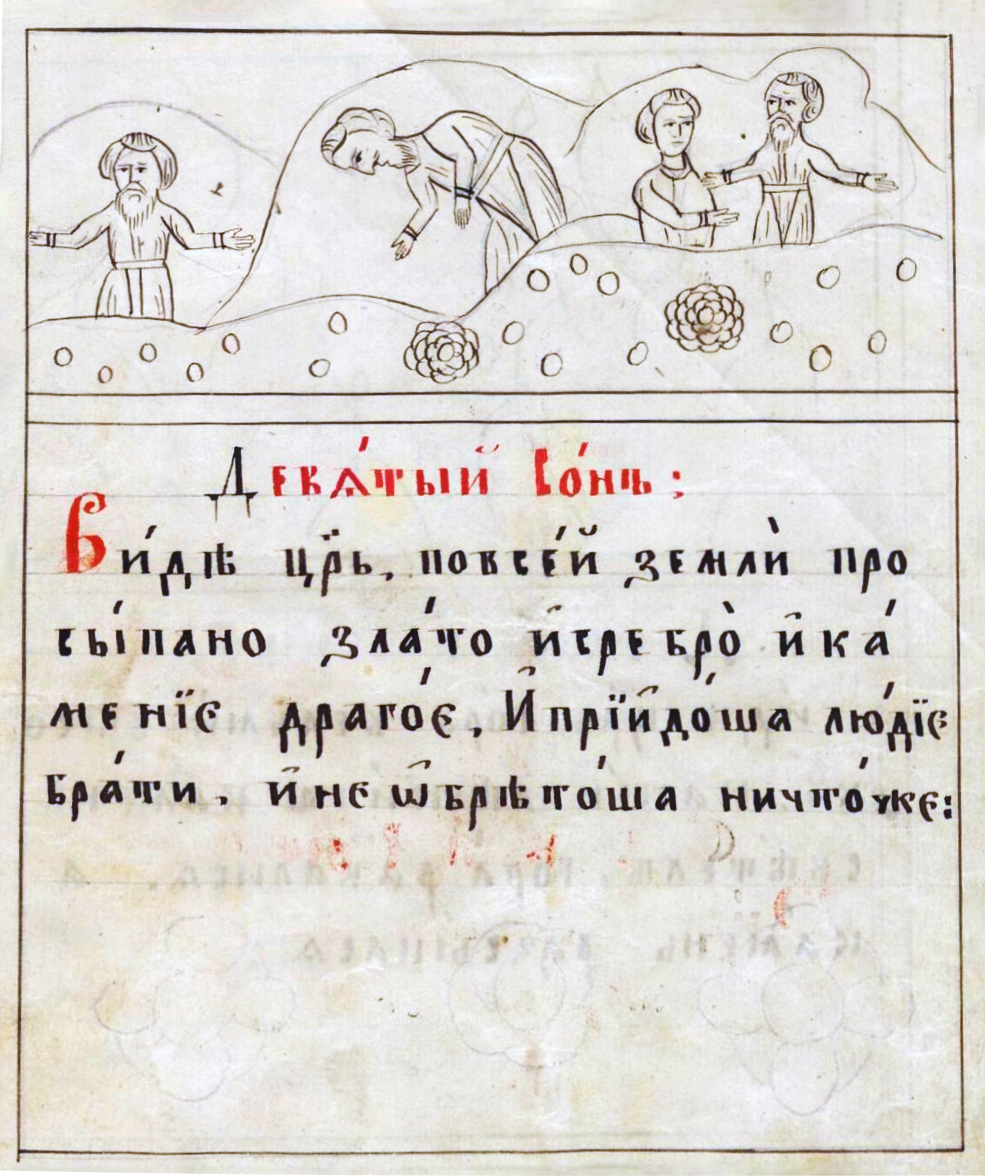 Девѧ́тый Со́нъ:
Ви́дѣ цр҃ь, повсе́й землѝ про
сы́пано зла́то и҆сребро̀ и҆ка́
менїе драго́е, И҆прїи҆до́ша лю́дїе
бра́ти. и҆не ѡ҆брѣто́ша ничто́же: